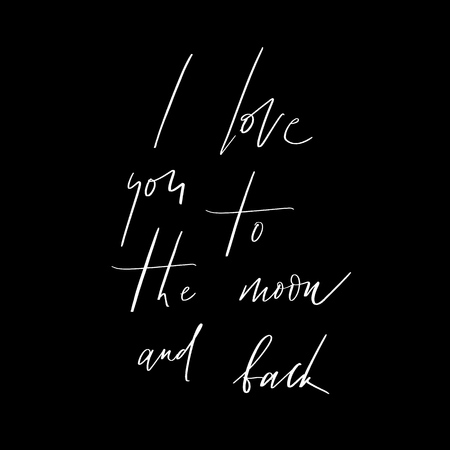 I love
you to
the moon
and back